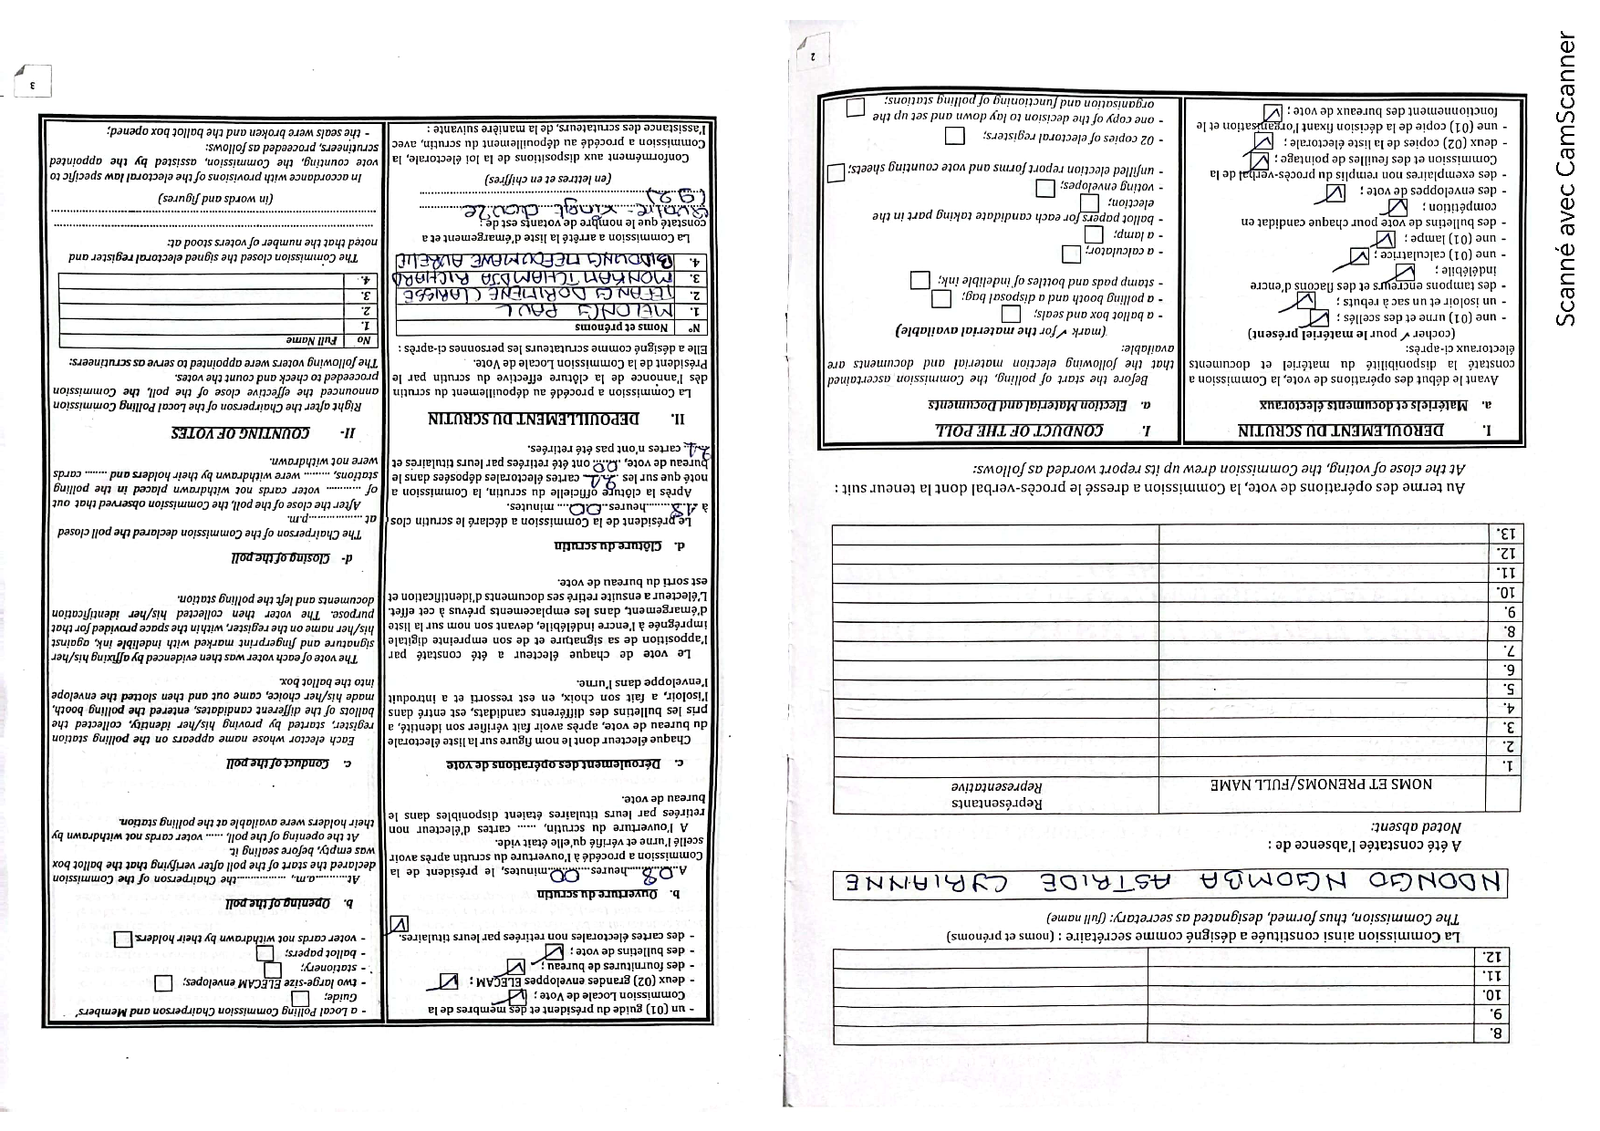 8.
9.
10.
11.
12.
La Commission ainsi constituée a désigné comme secrétaire : (noms et prénoms)
The Commission, thus formed, designated as secretary: (full name)
NDONGO NGOMBA ASTRIDE CYRIANNE
A été constatée l'absence de :
Noted absent:
NOMS ET PRENOMS/FULL NAME
Représentants
Representative
1.
2.
3.
4.
5.
6.
7.
8.
9.
10.
11.
12.
13.
Au terme des opérations de vote, la Commission a dressé le procès-verbal dont la teneur suit :
At the close of voting, the Commission drew up its report worded as follows:
I. DEROULEMENT DU SCRUTIN
a. Matériels et documents électoraux
Avant le début des opérations de vote, la Commission a
constaté la disponibilité du matériel et documents
électoraux ci-après:
(cocher ✓ pour le matériel présent)
- une (01) urne et des scellés ;
- un isoloir et un sac à rebuts ;
- des tampons encreurs et des flacons d'encre
indélébile ;
- une (01) calculatrice ;
- une (01) lampe ;
- des bulletins de vote pour chaque candidat en
compétition ;
- des enveloppes de vote ;
- des exemplaires non remplis du procès-verbal de la
Commission et des feuilles de pointage ;
- deux (02) copies de la liste électorale ;
- une (01) copie de la décision fixant l'organisation et le
fonctionnement des bureaux de vote ;
I. CONDUCT OF THE POLL
a. Election Material and Documents
Before the start of polling, the Commission ascertained
that the following election material and documents are
available:
(mark ✓ for the material available)
- a ballot box and seals;
- a polling booth and a disposal bag;
- stamp pads and bottles of indelible ink;
- a calculator;
- a lamp;
- ballot papers for each candidate taking part in the
election;
- voting envelopes;
- unfilled election report forms and vote counting sheets;
- 02 copies of electoral registers;
- one copy of the decision to lay down and set up the
organisation and functioning of polling stations;
2
- un (01) guide du président et des membres de la
Commission Locale de Vote ;
- deux (02) grandes enveloppes ELECAM ;
- des fournitures de bureau ;
- des bulletins de vote ;
- des cartes électorales non retirées par leurs titulaires.
b. Ouverture du scrutin
A 08 heures 00 minutes, le président de la
Commission a procédé à l'ouverture du scrutin après avoir
scellé l'urne et vérifié qu'elle était vide.
A l'ouverture du scrutin, ...... cartes d'électeur non
retirées par leurs titulaires étaient disponibles dans le
bureau de vote.
c. Déroulement des opérations de vote
Chaque électeur dont le nom figure sur la liste électorale
du bureau de vote, après avoir fait vérifier son identité, a
pris les bulletins des différents candidats, est entré dans
l'isoloir, a fait son choix, en est ressorti et a introduit
l'enveloppe dans l'urne.
Le vote de chaque électeur a été constaté par
l'apposition de sa signature et de son empreinte digitale
imprégnée à l'encre indélébile, devant son nom sur la liste
d'émargement, dans les emplacements prévus à cet effet.
L'électeur a ensuite retiré ses documents d'identification et
est sorti du bureau de vote.
d. Clôture du scrutin
Le président de la Commission a déclaré le scrutin clos
à 18 heures 00 minutes.
Après la clôture officielle du scrutin, la Commission a
noté que sur les 21 cartes électorales déposées dans le
bureau de vote, 00 ont été retirées par leurs titulaires et
21 cartes n'ont pas été retirées.
II. DEPOUILLEMENT DU SCRUTIN
La Commission a procédé au dépouillement du scrutin
dès l'annonce de la clôture effective du scrutin par le
Président de la Commission Locale de Vote.
Elle a désigné comme scrutateurs les personnes ci-après :
N° Noms et prénoms
1. MELONG PAUL
2. TEFANG DORIMENE CLARISSE
3. MONKAM TCHAMDJA RICHARD
4. BIDOUNG MEFOUMANE AURELIE
La Commission a arrêté la liste d'émargement et a
constaté que le nombre de votants est de :
Quatre-vingt-douze
(92)
(en lettres et en chiffres)
Conformément aux dispositions de la loi électorale, la
Commission a procédé au dépouillement du scrutin, avec
l'assistance des scrutateurs, de la manière suivante :
- a Local Polling Commission Chairperson and Members'
Guide;
- two large-size ELECAM envelopes;
- stationery;
- ballot papers;
- voter cards not withdrawn by their holders.
b. Opening of the poll
At..........a.m., ..............the Chairperson of the Commission
declared the start of the poll after verifying that the ballot box
was empty, before sealing it.
At the opening of the poll, ...... voter cards not withdrawn by
their holders were available at the polling station.
c. Conduct of the poll
Each elector whose name appears on the polling station
register, started by proving his/her identity, collected the
ballots of the different candidates, entered the polling booth,
made his/her choice, came out and then slotted the envelope
into the ballot box.
The vote of each voter was then evidenced by affixing his/her
signature and fingerprint marked with indelible ink, against
his/her name on the register, within the space provided for that
purpose. The voter then collected his/her identification
documents and left the polling station.
d- Closing of the poll
The Chairperson of the Commission declared the poll closed
at ..................p.m.
After the close of the poll, the Commission observed that out
of .......... voter cards not withdrawn placed in the polling
stations, ......... were withdrawn by their holders and ....... cards
were not withdrawn.
II- COUNTING OF VOTES
Right after the Chairperson of the Local Polling Commission
announced the effective close of the poll, the Commission
proceeded to check and count the votes.
The following voters were appointed to serve as scrutineers:
No Full Name
1.
2.
3.
4.
The Commission closed the signed electoral register and
noted that the number of voters stood at:
(in words and figures)
In accordance with provisions of the electoral law specific to
vote counting, the Commission, assisted by the appointed
scrutineers, proceeded as follows:
- the seals were broken and the ballot box opened;
3
Scanné avec CamScanner